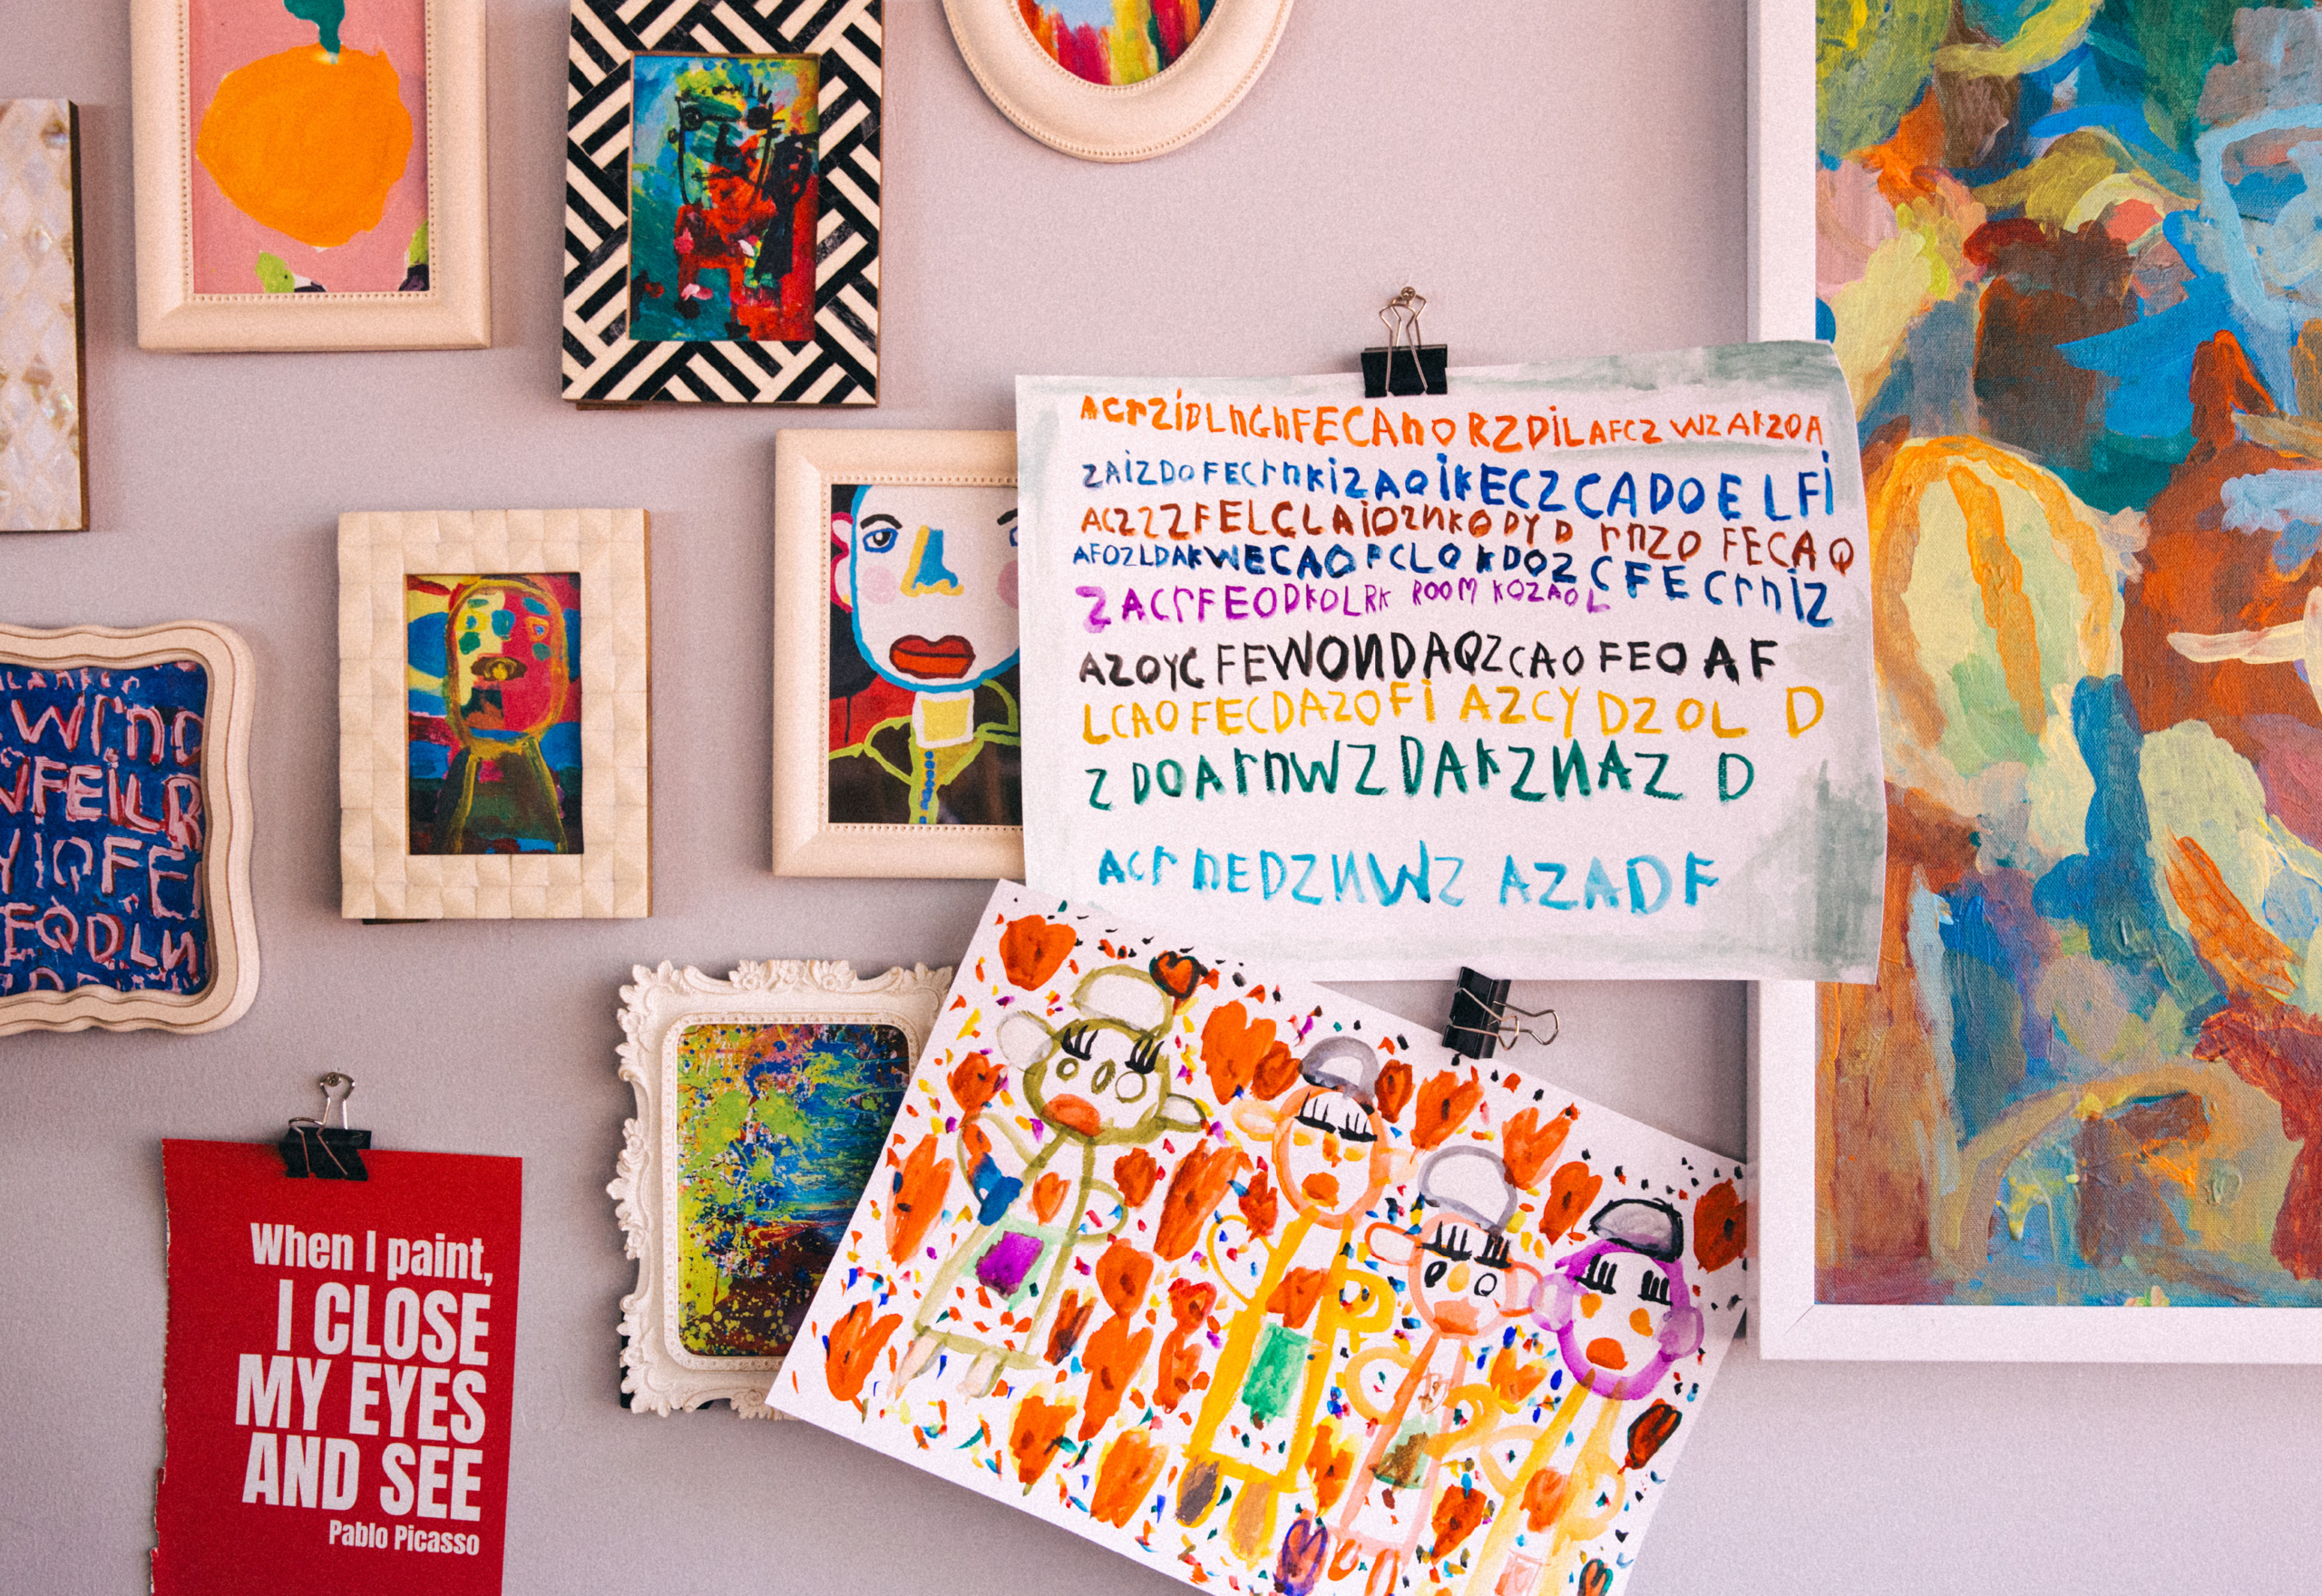 ACrZiDLnGnFECAnO RZDiLAFCZ WZ AKZOA
ZAiZDOFECrnKiZAQiKECZCADOE LFi
ACZZZFELCLAiOZNKODYD rnZO FECAQ
AFOZLDAKWECAOFCLOKDOZCFECrniZ
ZACrFEODKOLRK ROOM KOZAOL
AZOYC FEWONDAQZCAOFEO AF
LCAOFECDAZOFi AZCYDZOL D
Z DOArnWZDAKZNAZ D
ACrnEDZNWZ AZADF
WrnO
FEiLR
YIQFE
FQDLN
When I paint,
I CLOSE
MY EYES
AND SEE
Pablo Picasso